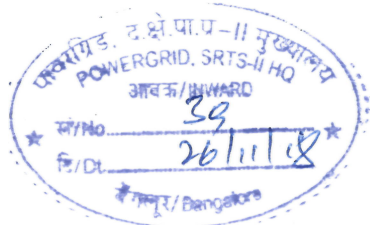 पावरग्रिड. द.क्षे.पा.प्र-II मुख्यालय
POWERGRID, SRTS-II HQ
आवक/INWARD
सं/No. 39
दि/Dt. 26/11/18
बेंगलूर/Bangalore